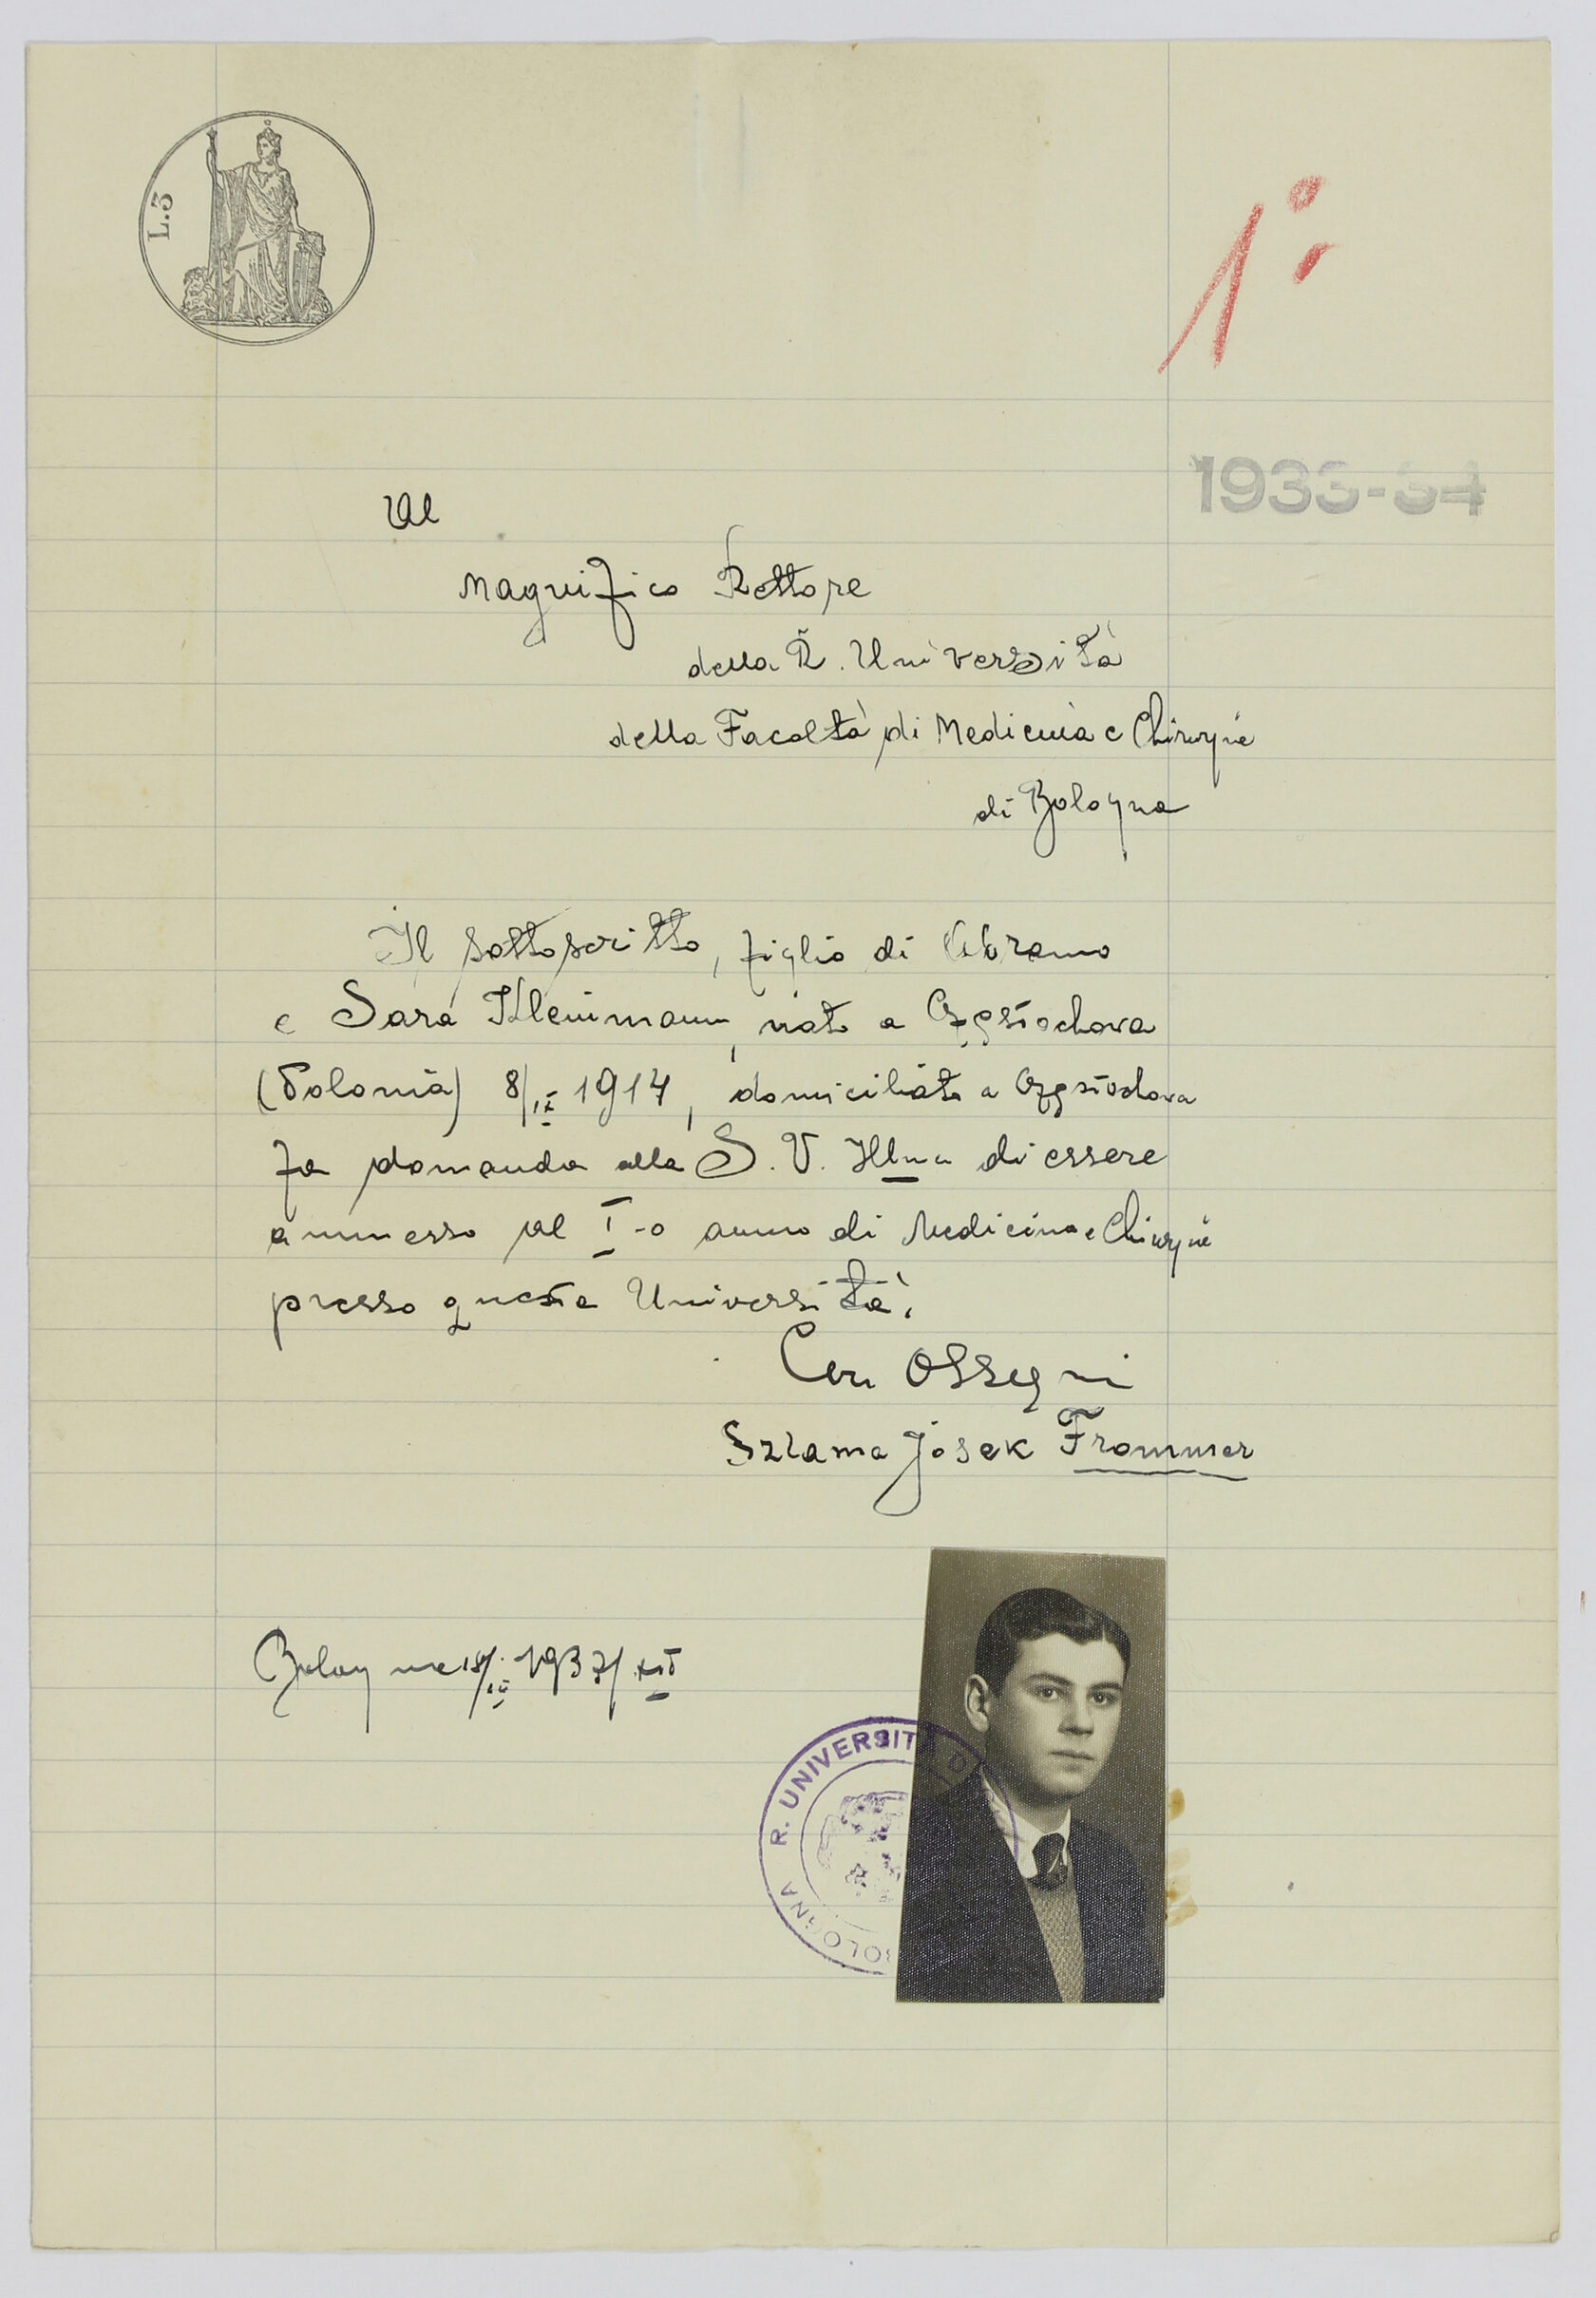 L.3
1°
1933-34
Al
Magnifico Rettore
della R. Università
della Facoltà di Medicina e Chirurgia
di Bologna
Il sottoscritto, figlio di Abramo
e Sara Kleinmann, nato a Częstochova
(Polonia) 8/IX 1914, domiciliato a Częstochova
fa domanda alla S. V. Illma di essere
ammesso al I-o anno di Medicina e Chirurgia
presso questa Università.
Con ossequi
Szlama Josek Frommer
Bologna
R. UNIVERSITÀ D
BOLOGNA